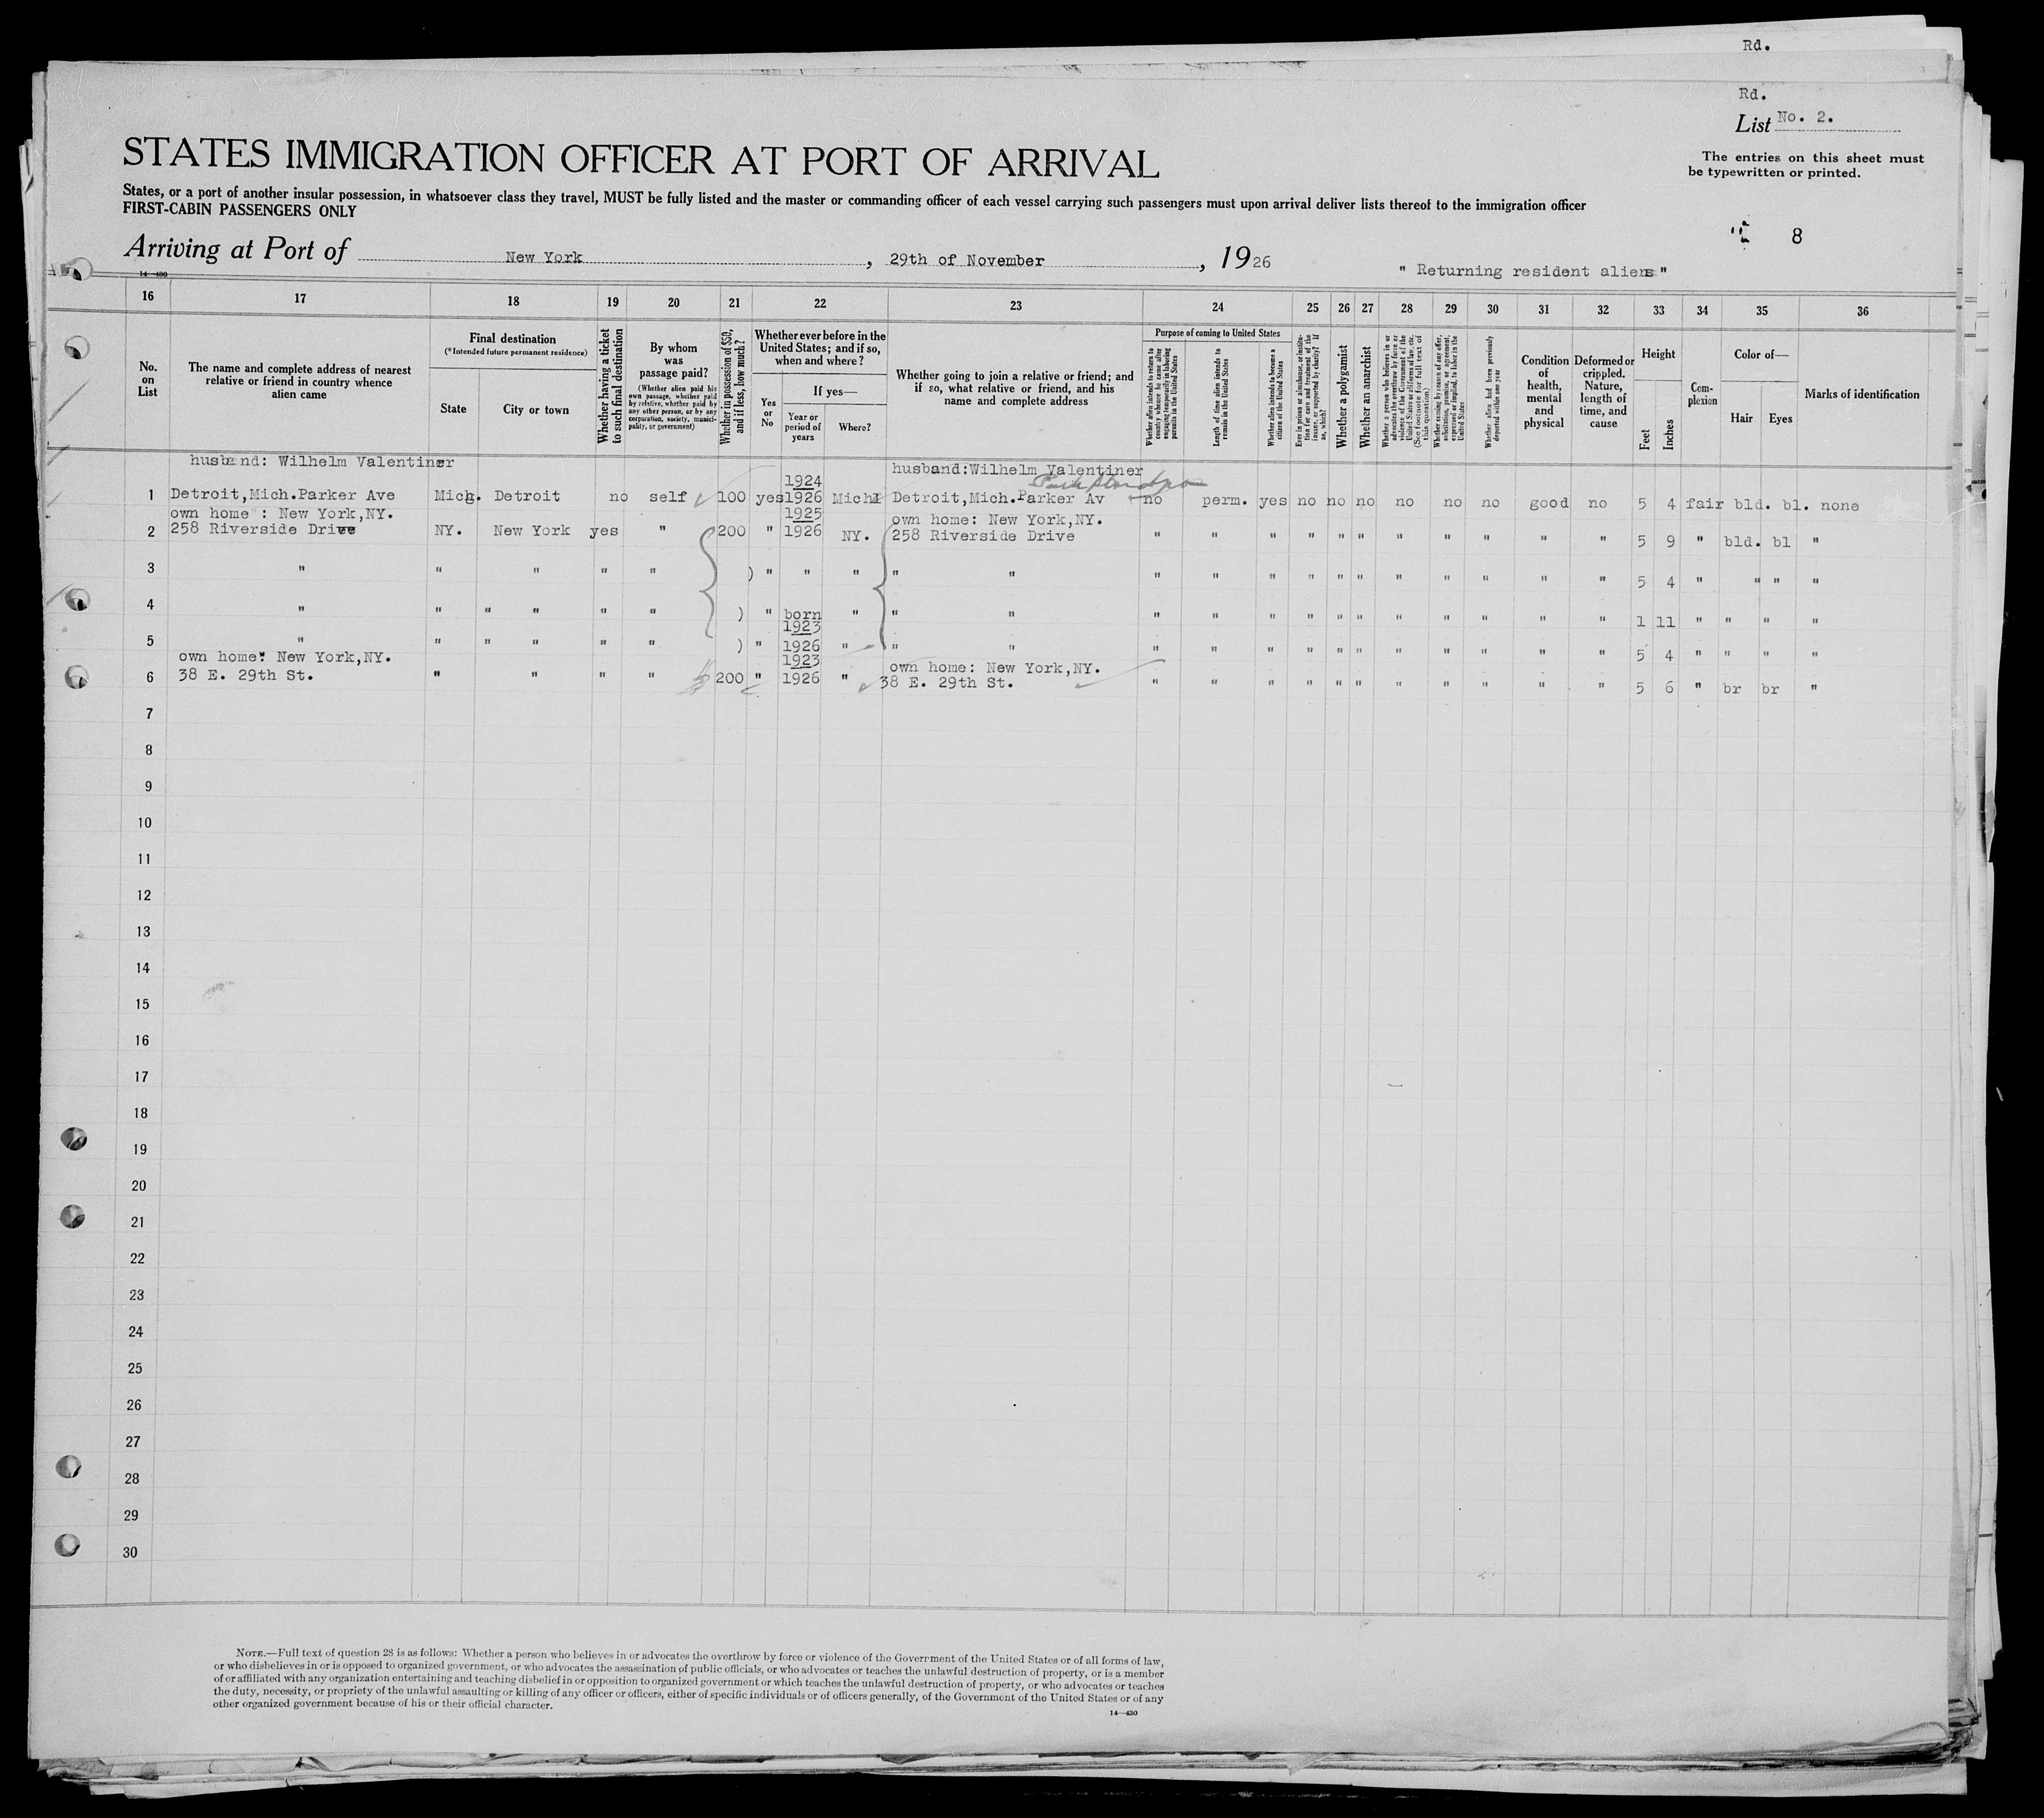 Rd.
Rd.
List No. 2.
The entries on this sheet must
be typewritten or printed.
STATES IMMIGRATION OFFICER AT PORT OF ARRIVAL
States, or a port of another insular possession, in whatsoever class they travel, MUST be fully listed and the master or commanding officer of each vessel carrying such passengers must upon arrival deliver lists thereof to the immigration officer
FIRST-CABIN PASSENGERS ONLY
8
Arriving at Port of New York, 29th of November, 1926
" Returning resident aliens "
14-430
16 17 18 19 20 21 22 23 24 25 26 27 28 29 30 31 32 33 34 35 36
No. on List
The name and complete address of nearest
relative or friend in country whence
alien came
Final destination
(*Intended future permanent residence)
State
City or town
Whether having a ticket
to such final destination
By whom
was
passage paid?
(Whether alien paid his
own passage, whether paid
by relative, whether paid by
any other person, or by any
corporation, society, munici-
pality, or government)
Whether in possession of $50,
and if less, how much?
Whether ever before in the
United States; and if so,
when and where?
Yes
or
No
If yes—
Year or
period of
years
Where?
Whether going to join a relative or friend; and
if so, what relative or friend, and his
name and complete address
Purpose of coming to United States
Whether alien intends to return to
country whence he came after
engaging temporarily in laboring
pursuits in the United States
Length of time alien intends to
remain in the United States
Whether alien intends to become a
citizen of the United States
Ever in prison or almshouse, or institu-
tion for care and treatment of the
insane, or supported by charity? If
so, which?
Whether a polygamist
Whether an anarchist
Whether a person who believes in or
advocates the overthrow by force or
violence of the Government of the
United States or all forms of law, etc.
(See footnote for full text of
this question)
Whether coming by reason of any offer,
solicitation, promise, or agreement,
expressed or implied, to labor in the
United States
Whether alien had been previously
deported within one year
Condition
of
health,
mental
and
physical
Deformed or
crippled.
Nature,
length of
time, and
cause
Height
Feet
Inches
Com-
plexion
Color of—
Hair
Eyes
Marks of identification
husband: Wilhelm Valentiner 1924 husband:Wilhelm Valentiner
1 Detroit,Mich.Parker Ave Mich. Detroit no self 100 yes 1926 Mich Detroit,Mich.Parker Av no perm. yes no no no no no no good no 5 4 fair bld. bl. none
own home": New York,NY. 1925 own home: New York,NY.
2 258 Riverside Drive NY. New York yes " 200 " 1926 NY. 258 Riverside Drive " " " " " " " " " " " 5 9 " bld. bl "
3 " " " " " ) " " " " " " " " " " " " " " " " 5 4 " " " "
4 " " " " " " ) " born " " " " " " " " " " " " " " 1 11 " " " "
1923
5 " " " " " " ) " 1926 " " " " " " " " " " " " " " 5 4 " " " "
own home": New York,NY. 1923 own home: New York,NY.
6 38 E. 29th St. " " " " 200 " 1926 " 38 E. 29th St. " " " " " " " " " " " 5 6 " br br "
7
8
9
10
11
12
13
14
15
16
17
18
19
20
21
22
23
24
25
26
27
28
29
30
NOTE.—Full text of question 28 is as follows: Whether a person who believes in or advocates the overthrow by force or violence of the Government of the United States or of all forms of law,
or who disbelieves in or is opposed to organized government, or who advocates the assassination of public officials, or who advocates or teaches the unlawful destruction of property, or is a member
of or affiliated with any organization entertaining and teaching disbelief in or opposition to organized government or which teaches the unlawful destruction of property, or who advocates or teaches
the duty, necessity, or propriety of the unlawful assaulting or killing of any officer or officers, either of specific individuals or of officers generally, of the Government of the United States or of any
other organized government because of his or their official character.
14-430